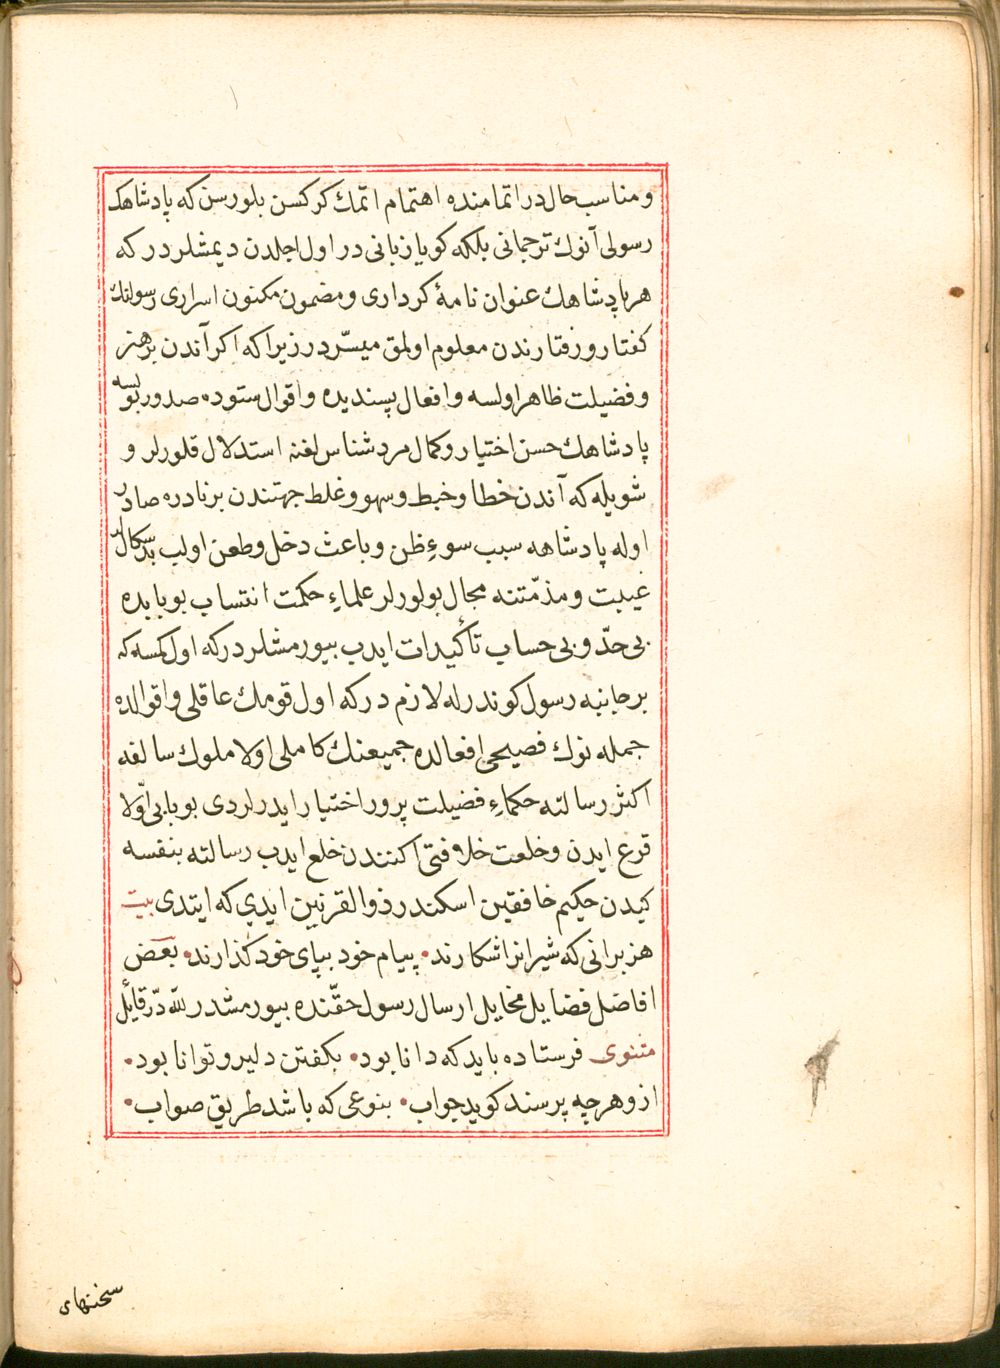 و مناسب حال در اتمامنده اهتمام اتمك كركسن بلورسن كه پادشاهك
رسولی آنوك ترجمانی بلكه كویا زبانی در اول اجلدن دیمشلردر كه
هر پادشاهك عنوان نامهٔ كرداری و مضمون مكنون اسراری رسولنك
كفتار و رفتارندن معلوم اولمق میسّردر زیرا كه اكر آندن بر هنر
و فضیلت ظاهر اولسه و افعال پسندیده و اقوال ستوده صدور بولسه
پادشاهك حسن اختیار و كمال مردشناسلغنه استدلال قلورلر و
شویله كه آندن خطا و خبط و سهو و غلط جهتندن بر نادره صادر
اوله پادشاهه سبب سوءِ ظن و باعث دخل و طعن اولب بدسكاللر
غیبت و مذمّتنه مجال بولورلر علماءِ حكمت انتساب بو بابده
بی حدّ و بی حساب تأكیدات ایدب بیورمشلردر كه اول كمسه كه
بر جانبه رسول كوندرله لازم در كه اول قومك عاقلی و اقوالده
جمله نوك فصیحی افعالده جمیعنك كاملی اولا ملوك سالفه
اكثر رسالته حكماءِ فضیلت پرور اختیار ایدرلردی بو بابی اوّلا
قرع ایدن و خلعت خلافتی اكنندن خلع ایدب رسالته بنفسه
كیدن حكیم خافقین اسكندر ذوالقرنین ایدی كه ایتدی بیت
هزبرانی كه شیرانرا شكارند • پیام خود بپای خود كذارند • بعض
افاضل فضایل مخایل ارسال رسول حقّنده بیورمشدر للّه درّ قایله
مثنوی فرستاده باید كه دانا بود • بكفتن دلیر و توانا بود •
ازو هر چه پرسند كوید جواب • بنوعی كه باشد طریق صواب •
سخنهای